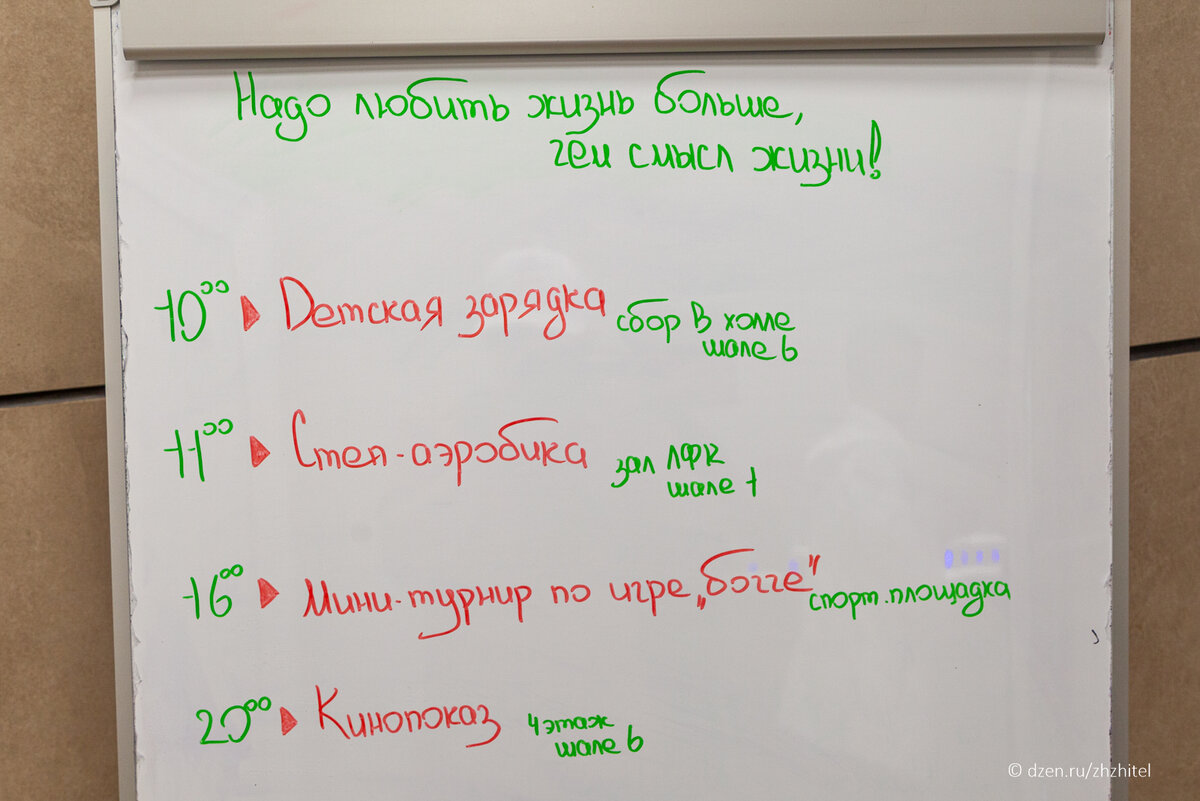 Надо любить жизнь больше,
чем смысл жизни!
10⁰⁰ ▶ Детская зарядка сбор в холле
шале 6
11⁰⁰ ▶ Степ-аэробика зал ЛФК
шале 1
16⁰⁰ ▶ Мини-турнир по игре „бочче" спорт.площадка
20⁰⁰ ▶ Кинопоказ 4 этаж
шале 6
© dzen.ru/zhzhitel